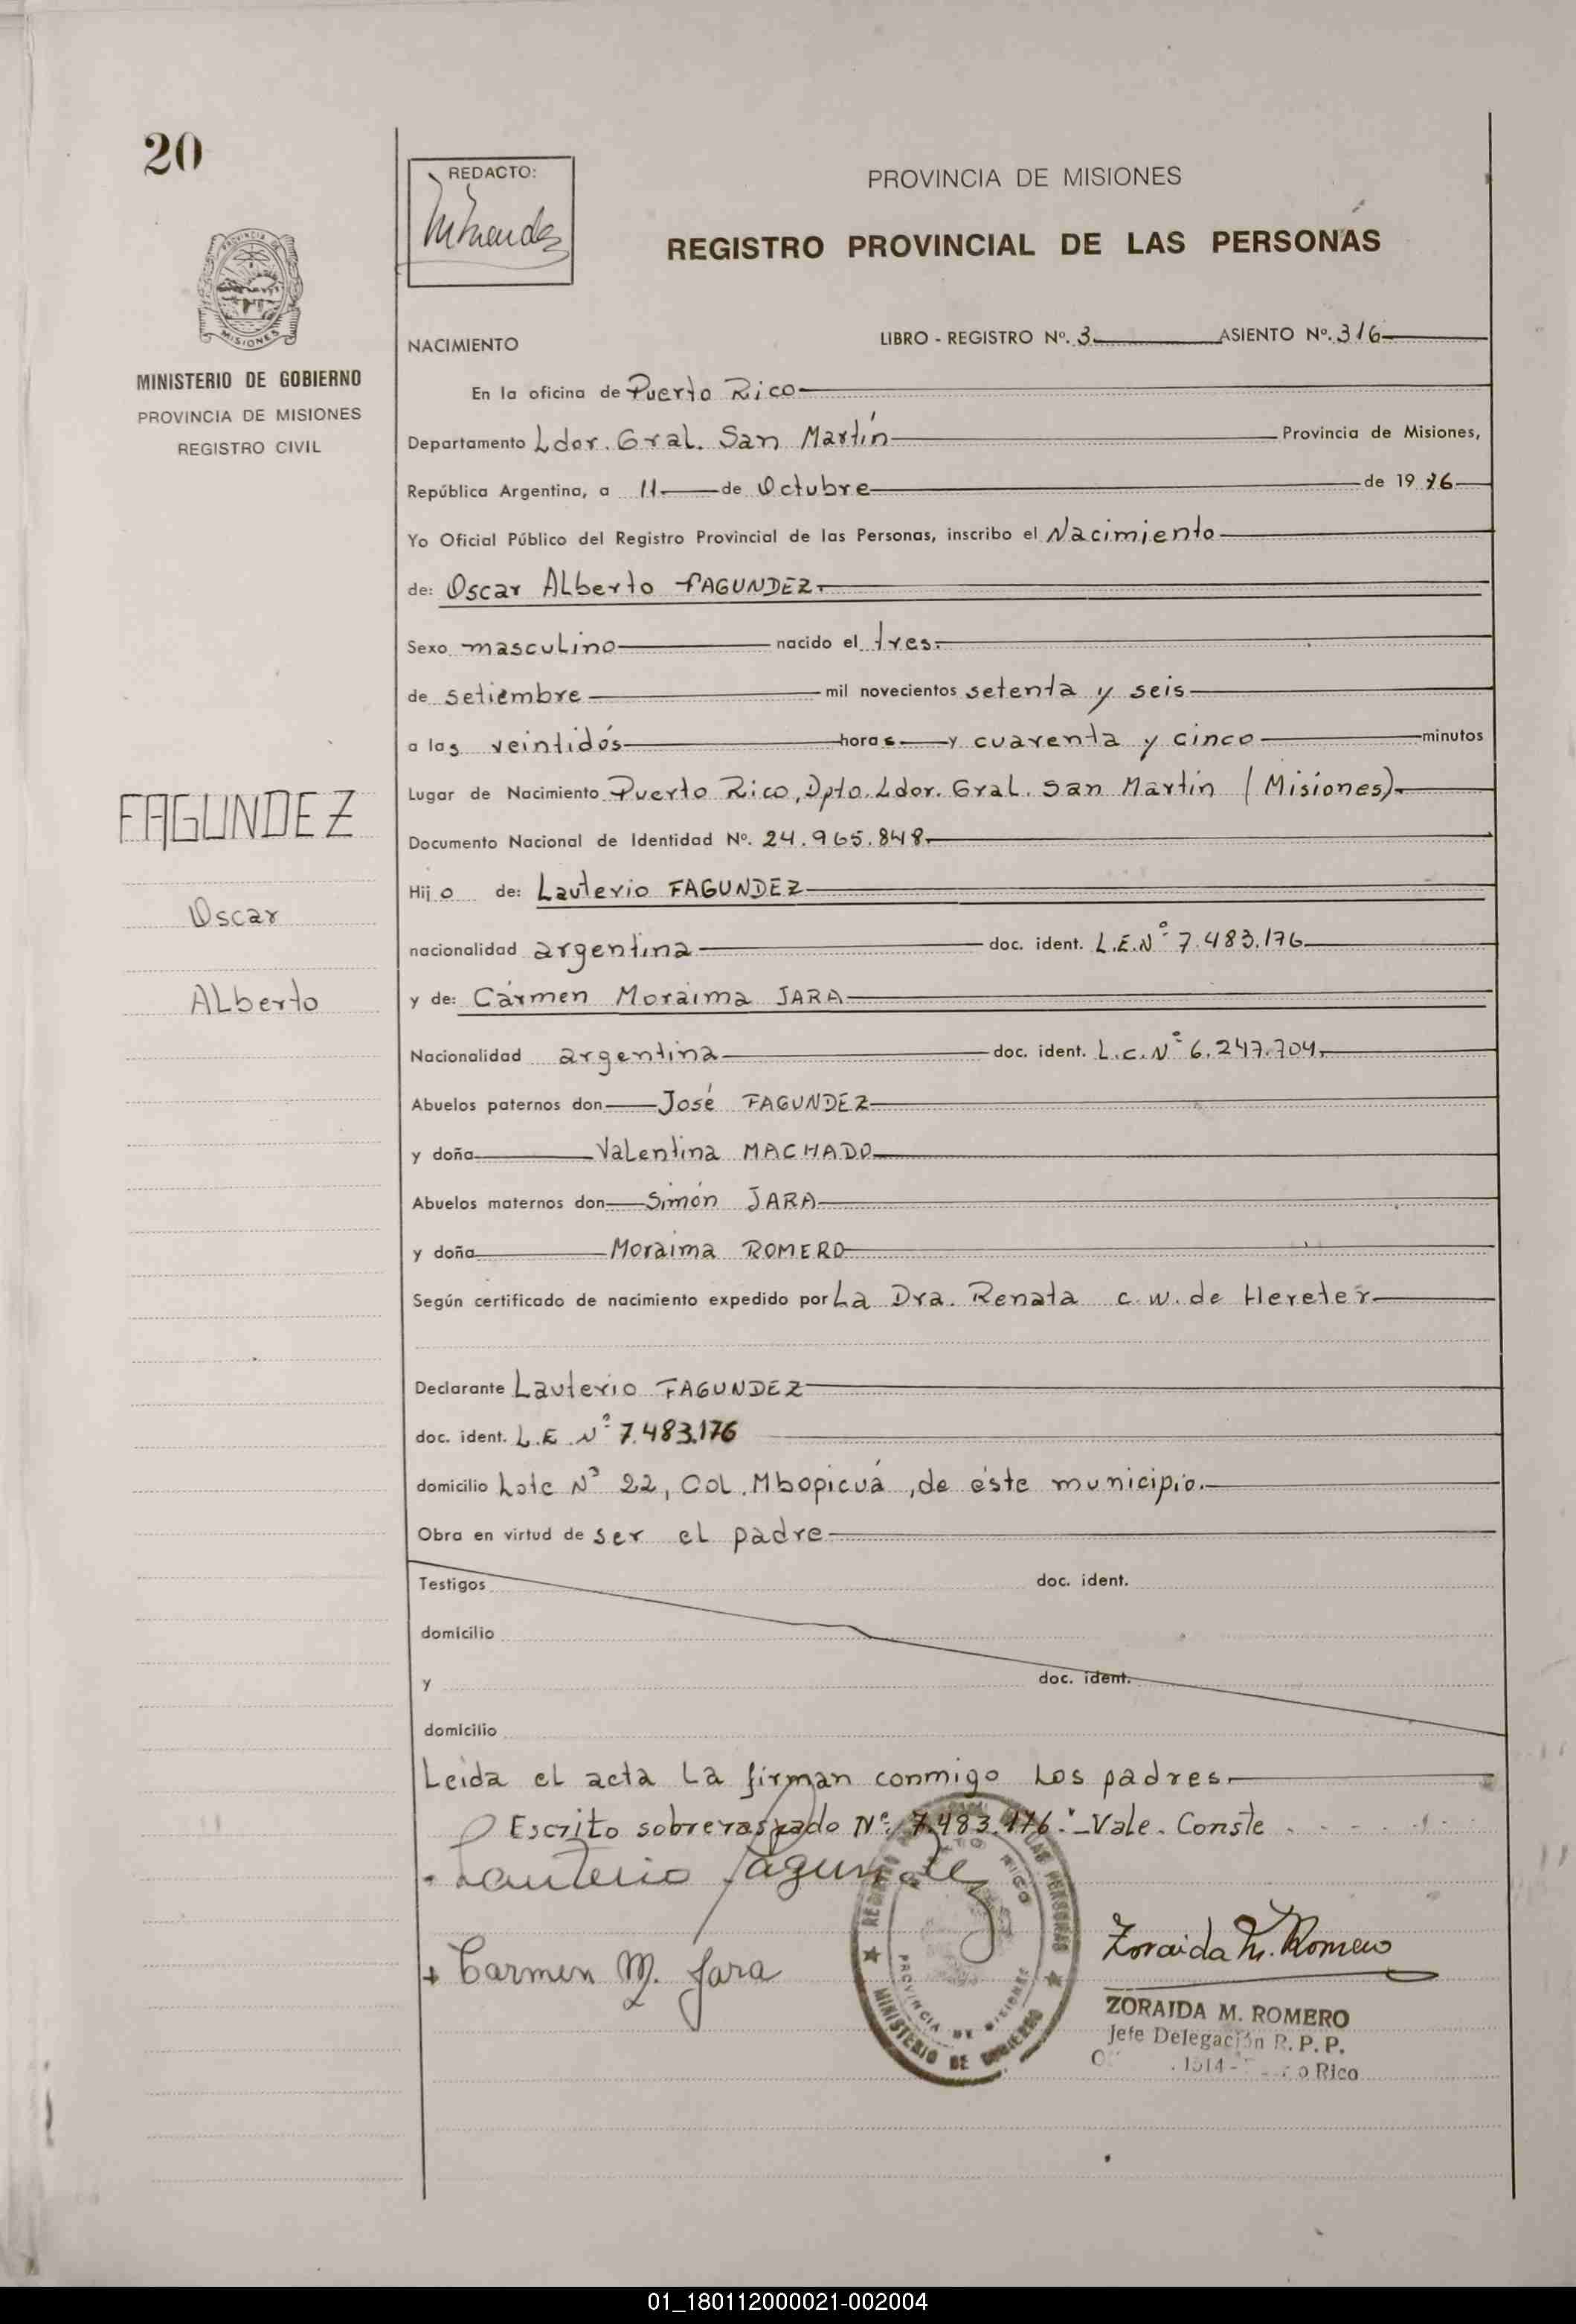 20
REDACTO:
PROVINCIA DE MISIONES
REGISTRO PROVINCIAL DE LAS PERSONAS
PROVINCIA DE
MISIONES
MINISTERIO DE GOBIERNO
PROVINCIA DE MISIONES
REGISTRO CIVIL
NACIMIENTO
LIBRO - REGISTRO Nº. 3 ASIENTO Nº. 316
En la oficina de Puerto Rico
Departamento Ldor. Gral. San Martín Provincia de Misiones,
República Argentina, a 11 de Octubre de 1976
Yo Oficial Público del Registro Provincial de las Personas, inscribo el Nacimiento
de: Oscar ALberto FAGUNDEZ
Sexo masculino nacido el tres
de setiembre mil novecientos setenta y seis
a las veintidós horas y cuarenta y cinco minutos
Lugar de Nacimiento Puerto Rico, Dpto. Ldor. Gral. San Martín (Misiones)
FAGUNDEZ
Oscar
ALberto
Documento Nacional de Identidad Nº. 24.965.848
Hijo de: Lauterio FAGUNDEZ
nacionalidad argentina doc. ident. L.E.Nº 7.483.176
y de: Cármen Moraima JARA
Nacionalidad argentina doc. ident. L.C.Nº 6.247.704
Abuelos paternos don José FAGUNDEZ
y doña Valentina MACHADO
Abuelos maternos don Simón JARA
y doña Moraima ROMERO
Según certificado de nacimiento expedido por La Dra. Renata C. W. de Hereter
Declarante Lauterio FAGUNDEZ
doc. ident. L.E Nº 7.483.176
domicilio Lote Nº 22, Col. Mbopicuá, de éste municipio.
Obra en virtud de ser el padre
Testigos doc. ident.
domicilio
y doc. ident.
domicilio
Leída el acta La firman conmigo Los padres
Escrito sobreraspado Nº: 7.483.176:" Vale. Conste
Lauterio Fagundez
Carmen M. Jara
Zoraida M. Romero
REGISTRO DE LAS PERSONAS
PUERTO RICO
PROVINCIA DE MISIONES
MINISTERIO DE GOBIERNO
ZORAIDA M. ROMERO
Jefe Delegación R. P. P.
Rico
01_180112000021-002004